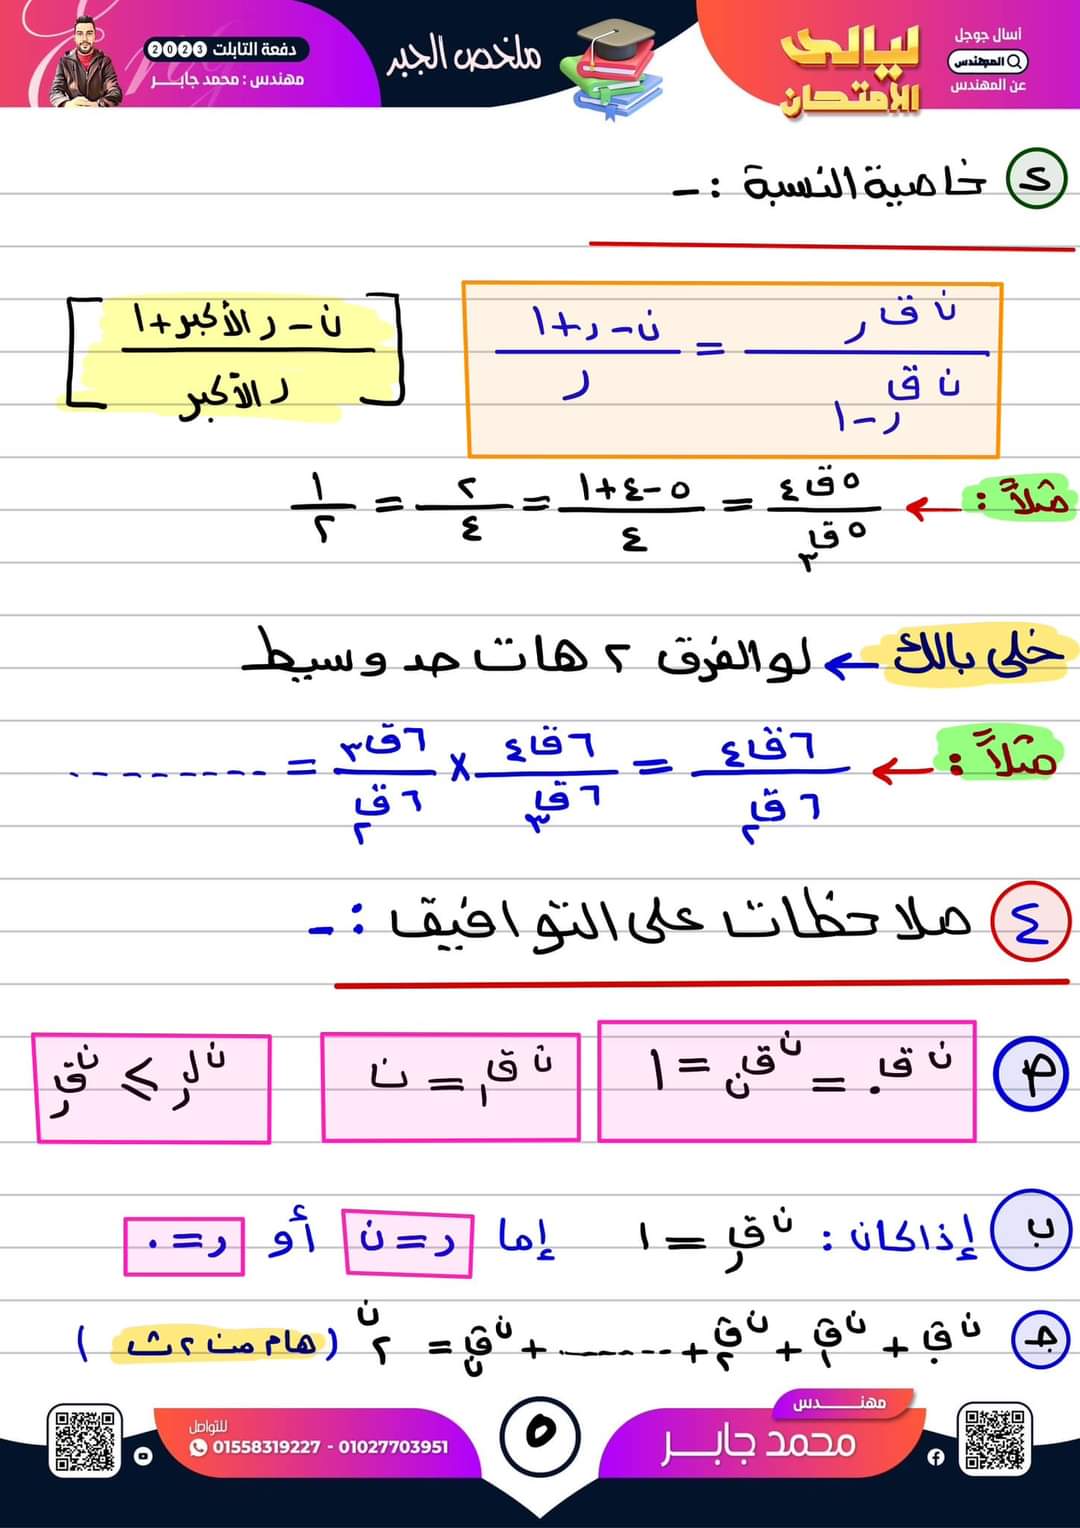 اسأل جوجل
المهندس
عن المهندس
ليالى
الامتحان
ملخص الجبر
دفعة التابلت 2023
مهندس : محمد جابـــر
٢ خاصية النسبة :-
ن ق ر / ن ق ر-١ = ن-ر+١ / ر
[ ن - ر الأكبر+١ / ر الأكبر ]
مثلاً : ← ٥ق٤ / ٥ق٣ = ٥-٤+١ / ٤ = ٢ / ٤ = ١ / ٢
خلى بالك ← لو الفرق ٢ هات حد وسيط
مثلاً : ← ٦ق٤ / ٦ق٢ = ٦ق٤ / ٦ق٣ × ٦ق٣ / ٦ق٢ = ---------
٤ ملاحظات على التوافيق :-
م ن ق ٠ = ن ق ن = ١
ن ق ١ = ن
ن ل ر ⩾ ن ق ر
ب إذا كان : ن ق ر = ١ إما ر = ن أو ر = ٠
جـ ن ق ٠ + ن ق ١ + ن ق ٢ + ------- + ن ق ن = ٢^ن (هام من ٢ ث)
مهنــــدس
محمد جابــر
٥
للتواصل
01558319227 - 01027703951